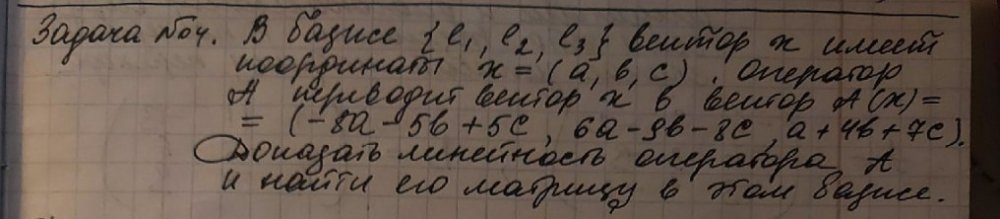 Задача №4. В базисе {e₁, e₂, e₃} вектор x имеет
координаты x = (a, b, c). Оператор
A переводит вектор x в вектор A(x)=
= (-8a-5b+5c, 6a-9b-8c, a+4b+7c).
Доказать линейность оператора A
и найти его матрицу в этом базисе.